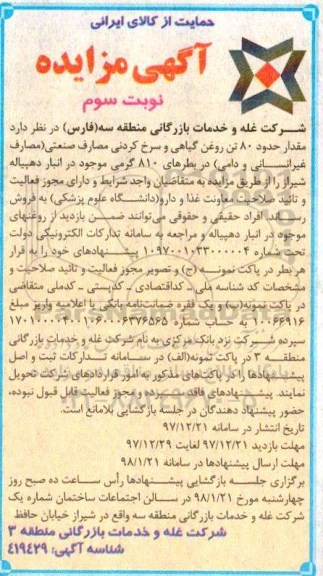 حمایت از کالای ایرانی
آگهی مزایده
نوبت سوم
شرکت غله و خدمات بازرگانی منطقه سه(فارس) در نظر دارد
مقدار حدود ۸۰ تن روغن گیاهی و سرخ کردنی مصارف صنعتی(مصارف
غیرانسانی و دامی) در بطرهای ۸۱۰ گرمی موجود در انبار دهپیاله
شیراز را از طریق مزایده به متقاضیان واجد شرایط و دارای مجوز فعالیت
و تائید صلاحیت معاونت غذا و دارو(دانشگاه علوم پزشکی) به فروش
رساند. افراد حقیقی و حقوقی می‌توانند ضمن بازدید از روغنهای
موجود در انبار دهپیاله و مراجعه به سامانه تدارکات الکترونیکی دولت
تحت شماره ۱۰۹۷۰۰۱۰۳۳۰۰۰۰۴ پیشنهادهای خود را به قرار
هر بطر در پاکت نمونه (ج) و تصویر مجوز فعالیت و تائید صلاحیت و
مشخصات کد شناسه ملی ـ کداقتصادی ـ کدپستی ـ کدملی متقاضی
در پاکت نمونه(ب) و یک فقره ضمانت‌نامه بانکی یا اعلامیه واریز مبلغ
به حساب شماره ۱۷۰۱۰۰۰۴۰۰۱۰۶۰۰۶۳۷۶۵۶۵
سپرده شرکت نزد بانک مرکزی به نام شرکت غله و خدمات بازرگانی
منطقه ۳ در پاکت نمونه(الف) در سامانه تدارکات ثبت و اصل
پیشنهادها را در پاکت‌های مذکور به امور قراردادهای شرکت تحویل
نمایند. پیشنهادهای فاقد سپرده و مجوز فعالیت قابل قبول نبوده،
حضور پیشنهاد دهندگان در جلسه بازگشایی بلامانع است.
تاریخ انتشار در سامانه ۹۷/۱۲/۲۱
مهلت بازدید ۹۷/۱۲/۲۱ لغایت ۹۷/۱۲/۲۹
مهلت ارسال پیشنهادها در سامانه ۹۸/۱/۲۱
برگزاری جلسه بازگشایی پیشنهادها رأس ساعت ده صبح روز
چهارشنبه مورخ ۹۸/۱/۲۱ در سالن اجتماعات ساختمان شماره یک
شرکت غله و خدمات بازرگانی منطقه سه واقع در شیراز خیابان حافظ
شرکت غله و خدمات بازرگانی منطقه ۳
شناسه آگهی: ۴۱۹۴۲۹